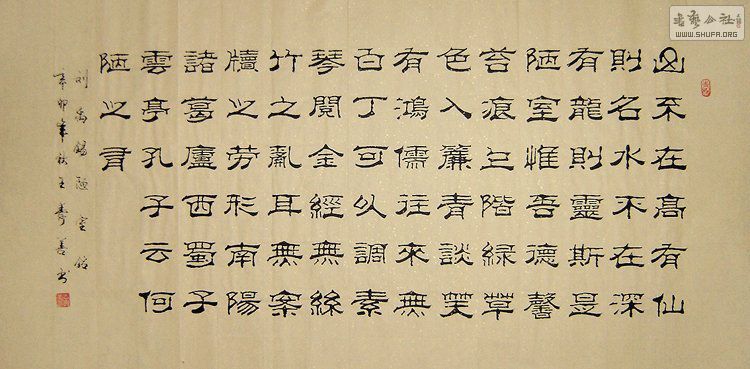 山不在高有仙
則名水不在深
有龍則靈斯是
陋室惟吾德馨
苔痕上階緑草
色入簾青談笑
有鴻儒往來無
白丁可以調素
琴閱金經無絲
竹之亂耳無案
牘之勞形南陽
諸葛廬西蜀子
雲亭孔子云何
陋之有
刘禹錫陋室銘
辛卯年秋王壽善书
書藝公社
WWW.SHUFA.ORG